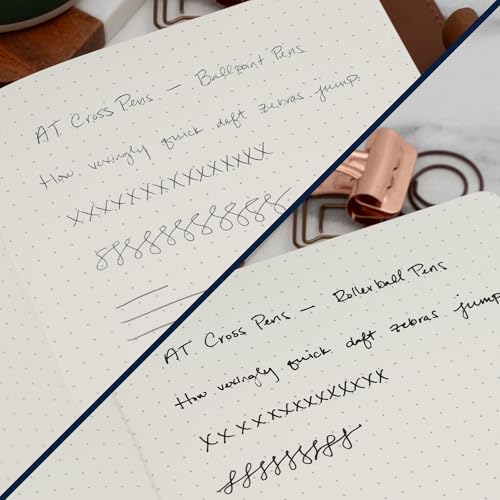 AT Cross Pens — Ballpoint Pens.
How vexingly quick daft zebras jump.
XXXXXXXXXXXXXXX
AT Cross Pens — Rollerball Pens
How vexingly quick daft zebras jump
XXXXXXXXXXXXXX